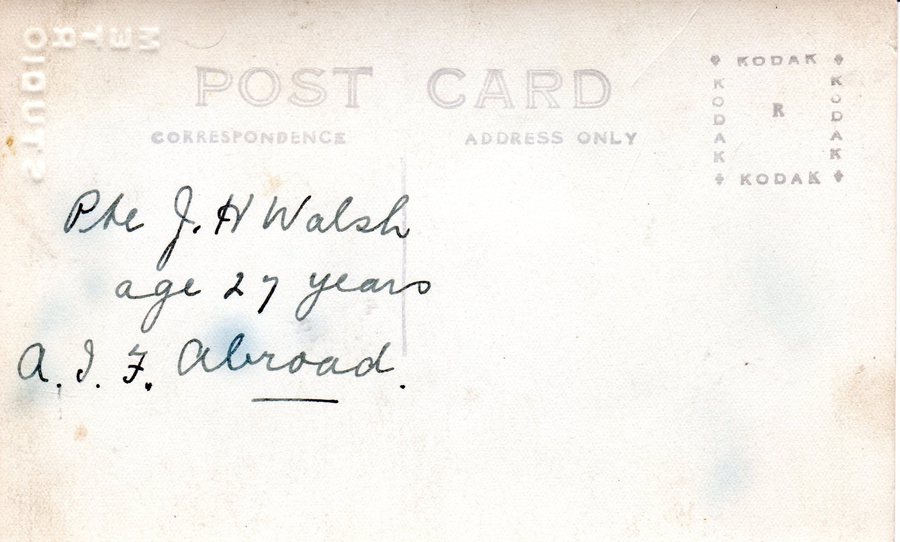 METRO
STUDIO
POST CARD
CORRESPONDENCE
ADDRESS ONLY
KODAK
KODAK
R
KODAK
KODAK
Pte J. H Walsh
age 27 years
A. I. F. Abroad.